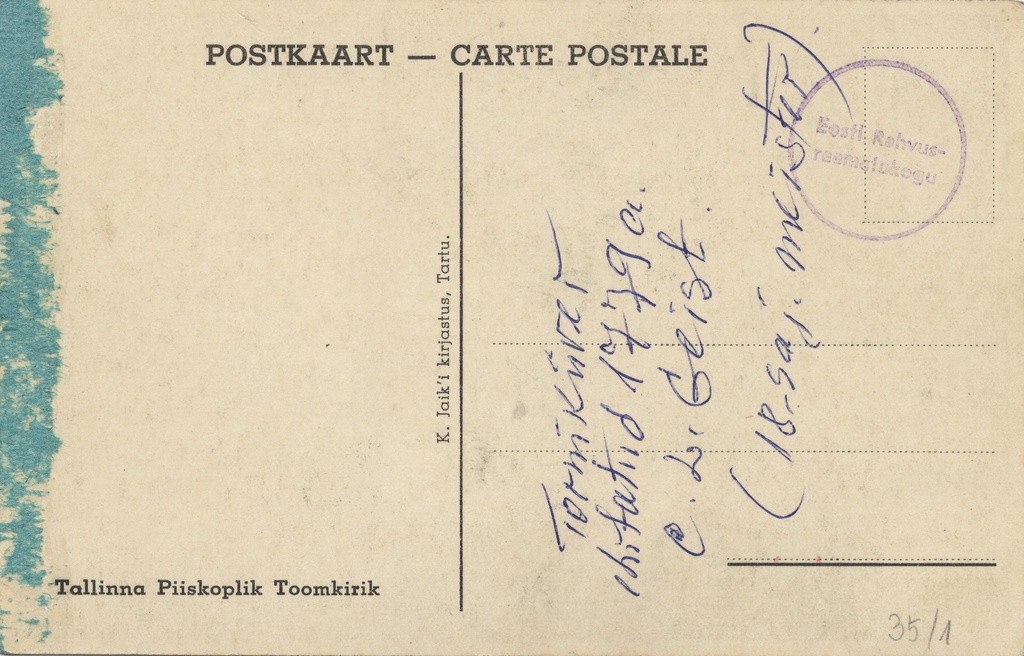 POSTKAART — CARTE POSTALE
Eesti Rahvus-
raamatukogu
K. Jaik'i kirjastus, Tartu.
Tornikiiver
ehitatud 1779 a.
C. L. Geist.
(18-saj. meister)
Tallinna Piiskoplik Toomkirik
35/1